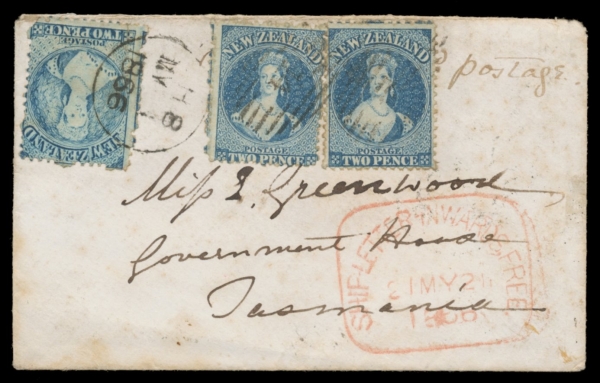 NEW ZEALAND
POSTAGE
TWO PENCE
NEW ZEALAND
POSTAGE
TWO PENCE
NEW ZEALAND
POSTAGE
TWO PENCE
866
postage
Miss Greenwood
Government House
Tasmania
SHIP-LETTER INWARDS FREE
MY 21
1866